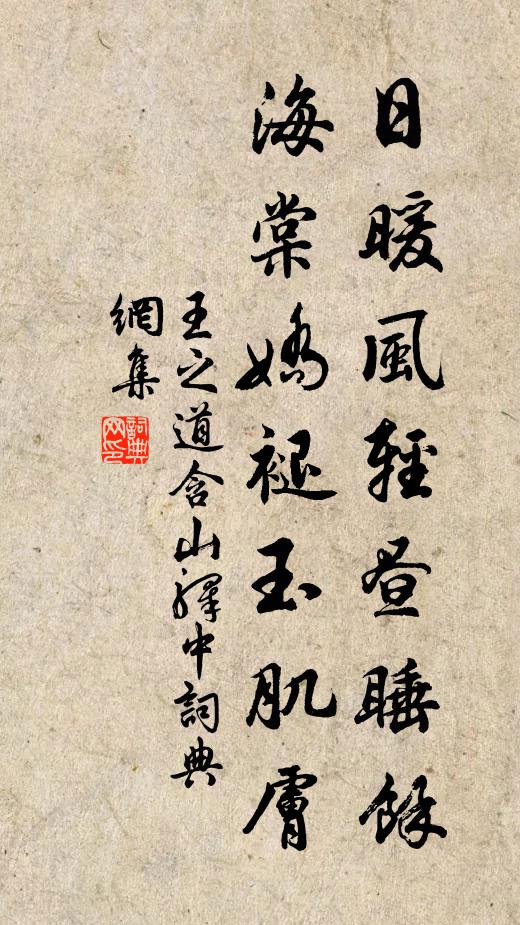 日暖風輕晝睡餘
海棠嬌褪玉肌膚
王之道含山驛中詞典
網集
詞典網印